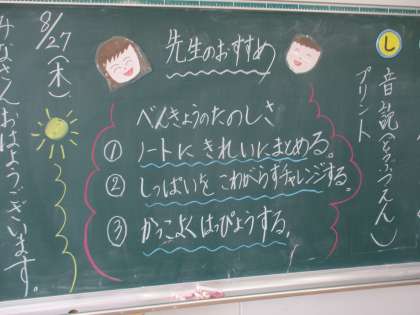 し
音読(どうぶつえん)
プリント
先生のおすすめ
べんきょうのたのしさ
① ノートに きれいにまとめる。
② しっぱいを こわがらずチャレンジする。
③ かっこよく はっぴょうする。
8/27(木)
みなさんおはようございます。